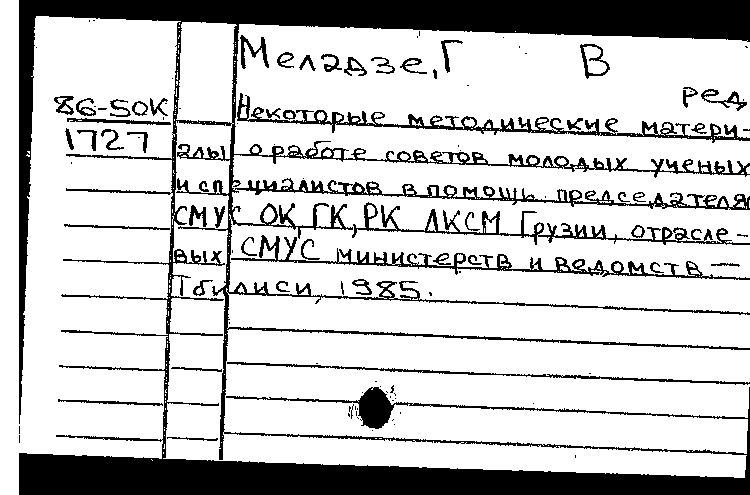 Меладзе, Г В
ред
86-50К Некоторые методические матери-
1727 алы о работе советов молодых ученых
и специалистов в помощь председателя
СМУС ОК, ГК, РК ЛКСМ Грузии, отрасле-
вых СМУС министерств и ведомств. —
Тбилиси, 1985.